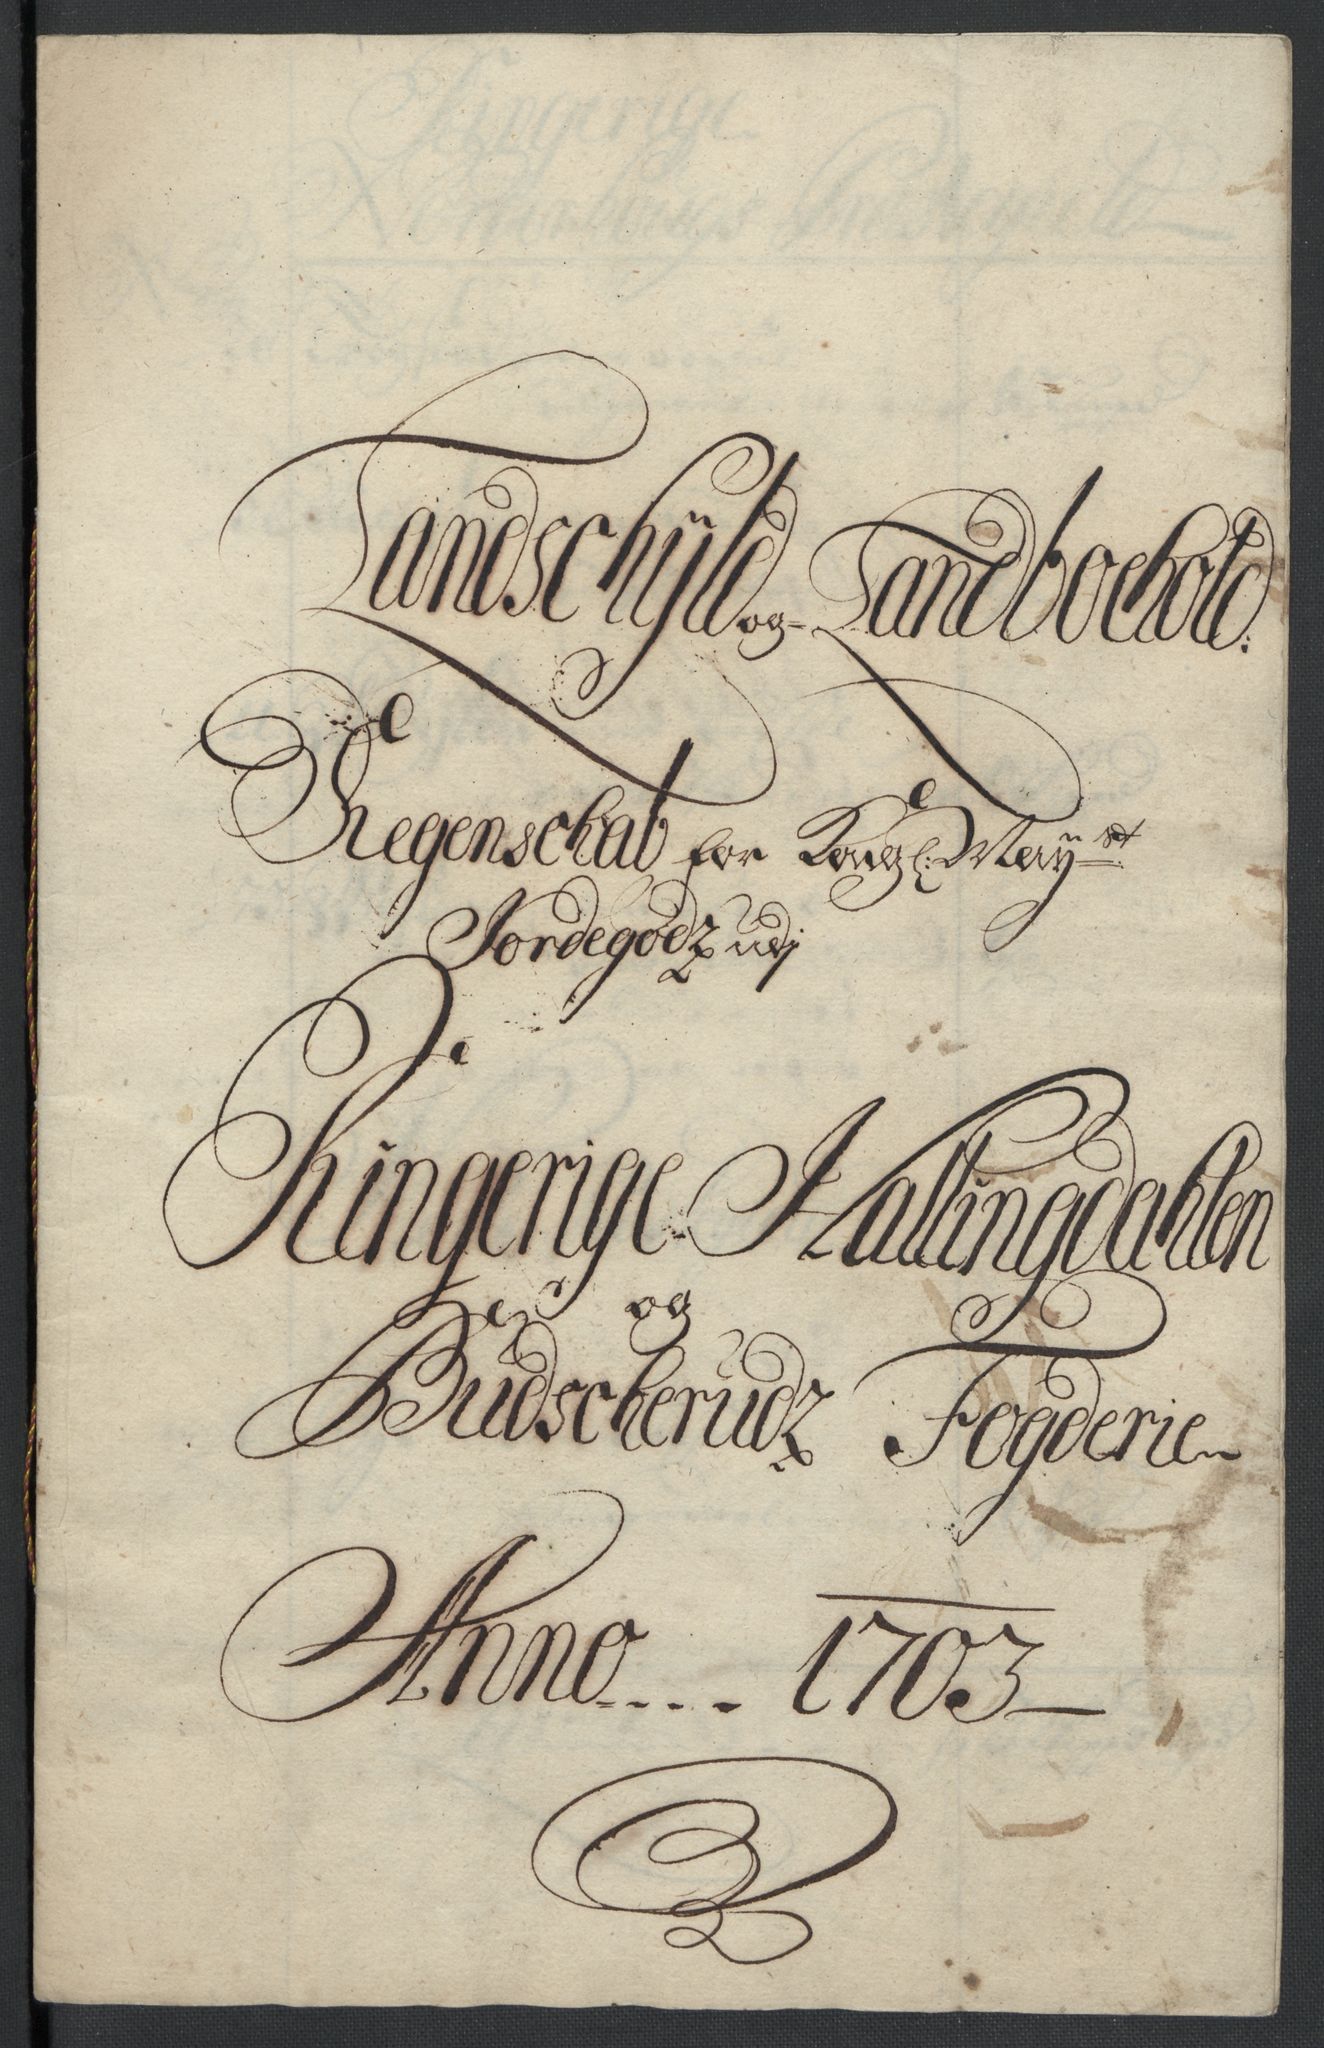 Landschÿld og Landbochold:
Regenschab for Kongl: Maÿst:
Jordegodz udj
Ringerige Hallingdahlen
og
Budscherudz Fogderie
Anno .... 1703